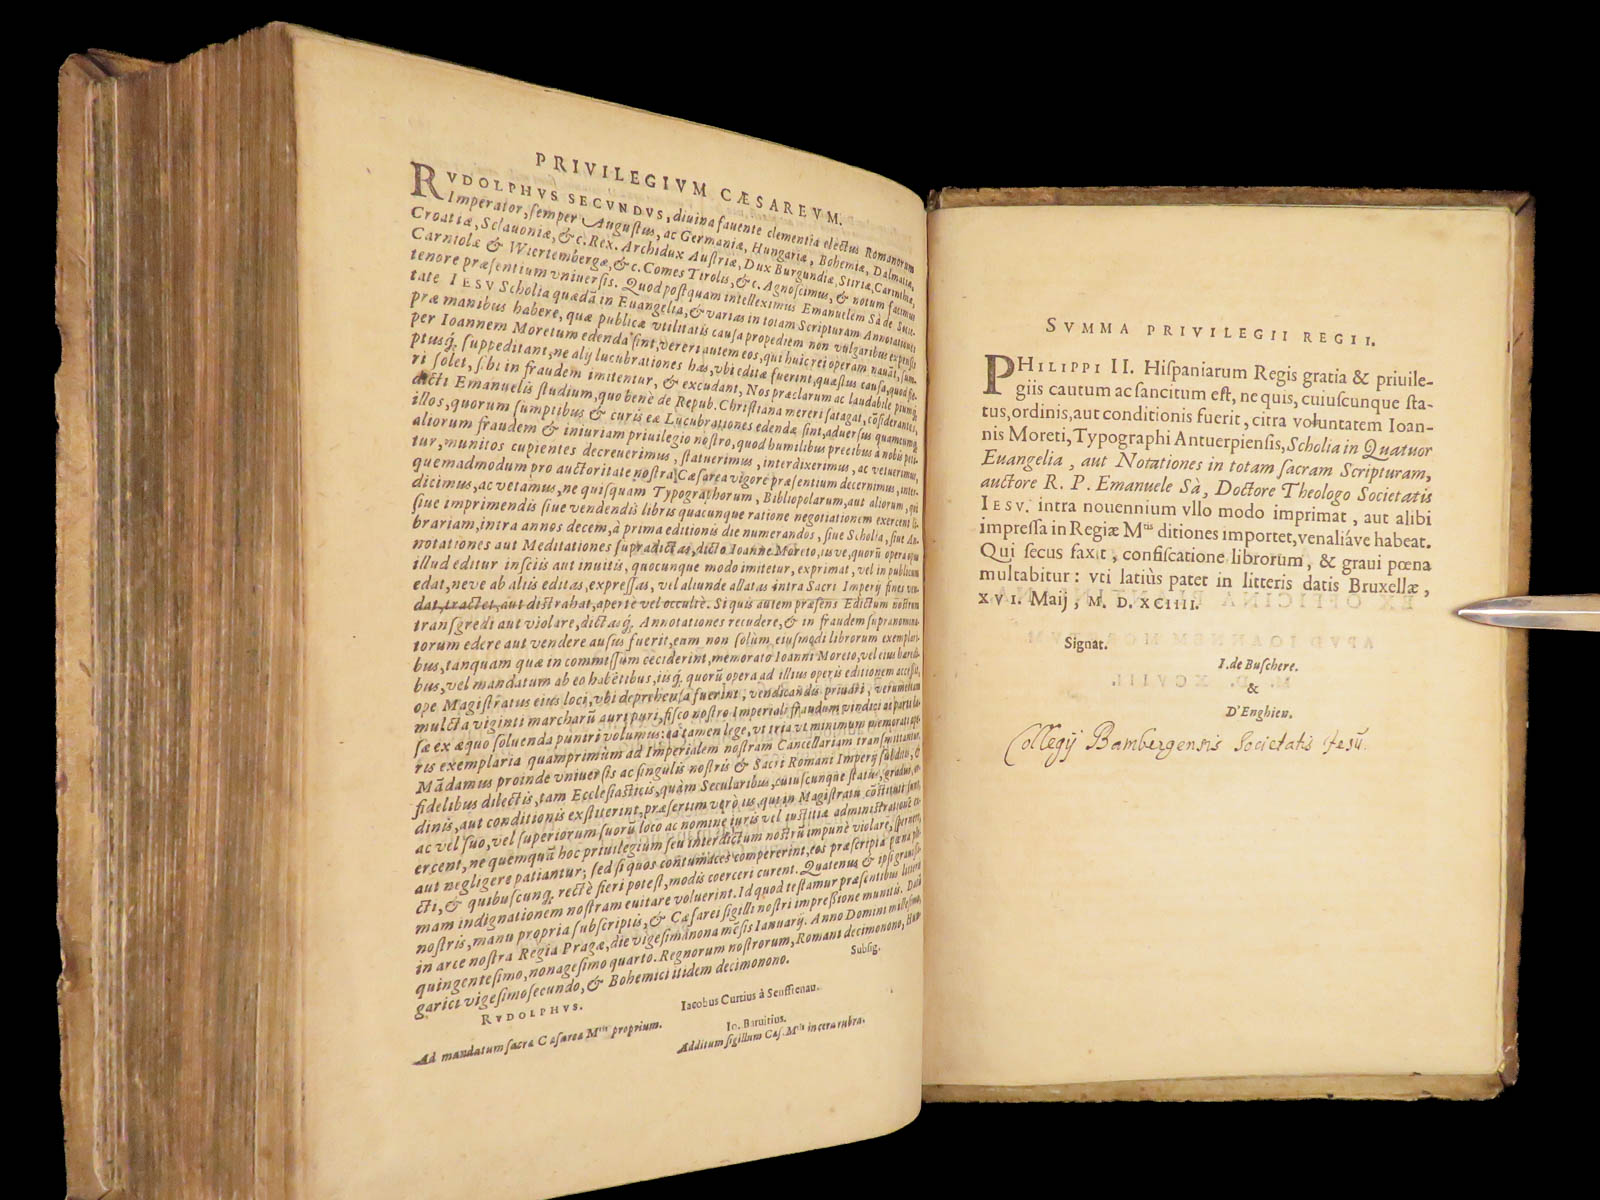 PRIVILEGIVM CÆSAREVM.
RVDOLPHVS SECVNDVS, diuina fauente clementia electus Romanorum
Imperator, semper Augustus, ac Germaniæ, Hungariæ, Bohemiæ, Dalmatiæ,
Croatiæ, Sclauoniæ, &c. Rex. Archidux Austriæ, Dux Burgundiæ, Stiriæ, Carinthiæ,
Carniolæ & Wiertembergæ, &c. Comes Tirolis, &c. Agnoscimus, & notum facimus
tenore præsentium vniuersis. Quod postquam intelleximus Emanuelem Sà de Socie-
tate IESV Scholia quædā in Euangelia, & varias in totam Scripturam Annotationes
præ manibus habere, quæ publicæ vtilitatis causa propediem non vulgaribus expensis
per Ioannem Moretum edenda sint, vereri autem eos, qui huic rei operam nauāt, sum-
ptusq́; suppeditant, ne alij lucubrationes has, vbi editæ fuerint, quæstus causa, quod fie-
ri solet, sibi in fraudem imitentur, & excudant, Nos præclarum ac laudabile
dicti Emanuelis studium, quo benè de Repub. Christiana mereri satagat, cōsiderantes,
illos, quorum sumptibus & curis eæ Lucubrationes edendæ sint, aduersus quamcumq́;
aliorum fraudem & iniuriam priuilegio nostro, quod humilibus precibus à nobis peti-
tur, munitos cupientes decreuerimus, statuerimus, interdixerimus, ac vetuerimus,
quemadmodum pro auctoritate nostra Cæsarea vigore præsentium decernimus, inter-
dicimus, ac vetamus, ne quisquam Typographorum, Bibliopolarum, aut aliorum, qui
siue imprimendis siue vendendis libris quacunque ratione negotiationem exercent li-
brariam, intra annos decem, à prima editionis die numerandos, siue Scholia, siue An-
notationes aut Meditationes supradictas, dicto Ioanne Moreto, iisve, quorū opera opus
illud editur insciis aut inuitis, quocunque modo imitetur, exprimat, vel in publicum
edat, neve ab aliis editas, expressas, vel aliunde allatas intra Sacri Imperij fines ven-
dat, tractet, aut distrahat, apertè vel occultè. Si quis autem præsens Edictum nostrum
transgredi aut violare, dictasq́; Annotationes recudere, & in fraudem supranomina-
torum edere aut vendere ausus fuerit, eam non solùm, eiusmodi librorum exemplari-
bus, tanquam quæ in commissum ceciderint, memorato Ioanni Moreto, vel eius hæredi-
bus, vel mandatum ab eo habētibus, iisq́; quorū opera ad illius operis editionem accessit,
ope Magistratus eius loci, vbi deprehensa fuerint, vendicandis priuari, verumetiam
mulcta viginti marcharū auri puri, fisco nostro Imperiali fraudum vindici ac parti læ-
sæ ex æquo soluenda puniri volumus: eâ tamen lege, vt tria vt minimum memorati ope-
ris exemplaria quamprimùm ad Imperialem nostram Cancellariam transmittantur.
Mādamus proinde vniuersis ac singulis nostris & Sacri Romani Imperij subditis, &
fidelibus dilectis, tam Ecclesiasticis, quàm Secularibus, cuiuscunque status, gradus, or-
dinis, aut conditionis exstiterint, præsertim verò iis, qui in Magistratu cōstituti sunt,
ac vel suo, vel superiorum suorū loco ac nomine iuris vel iustitiæ administrationē ex-
ercent, ne quemquā hoc priuilegium seu interdictum nostrū impunè violare, spernere,
aut negligere patiantur; sed si quos contumaces compererint, eos præscripta pœna ple-
cti, & quibuscunq́; rectè fieri potest, modis coerceri curent. Quatenus & ipsi grauissi-
mam indignationem nostram euitare voluerint. Id quod testamur præsentibus litteris
nostris, manu propria subscriptis, & Cæsarei sigilli nostri impressione munitis. Datis
in arce nostra Regia Pragæ, die vigesimānona mēsis Ianuarij. Anno Domini millesimo,
quingentesimo, nonagesimo quarto. Regnorum nostrorum, Romani decimonono, Hun-
garici vigesimosecundo, & Bohemici itidem decimonono.
Subsig.
RVDOLPHVS.
Iacobus Curtius à Senfftenau.
Ad mandatum sacræ Cæsareæ Mtis proprium.
Io. Baruitius.
Additum sigillum Cæs. Mtis in cera rubra.
SVMMA PRIVILEGII REGII.
PHILIPPI II. Hispaniarum Regis gratia & priuile-
giis cautum ac sancitum est, ne quis, cuiuscunque sta-
tus, ordinis, aut conditionis fuerit, citra voluntatem Ioan-
nis Moreti, Typographi Antuerpiensis, Scholia in Quatuor
Euangelia, aut Notationes in totam sacram Scripturam,
auctore R. P. Emanuele Sà, Doctore Theologo Societatis
IESV. intra nouennium vllo modo imprimat, aut alibi
impressa in Regiæ Mtis ditiones importet, venaliáve habeat.
Qui secus faxit, confiscatione librorum, & graui pœna
multabitur: vti latiùs patet in litteris datis Bruxellæ,
XVI. Maij, M. D. XCIIII.
Signat.
I. de Buschere.
&
D'Enghien.
Collegij Bambergensis Societatis Jesū.